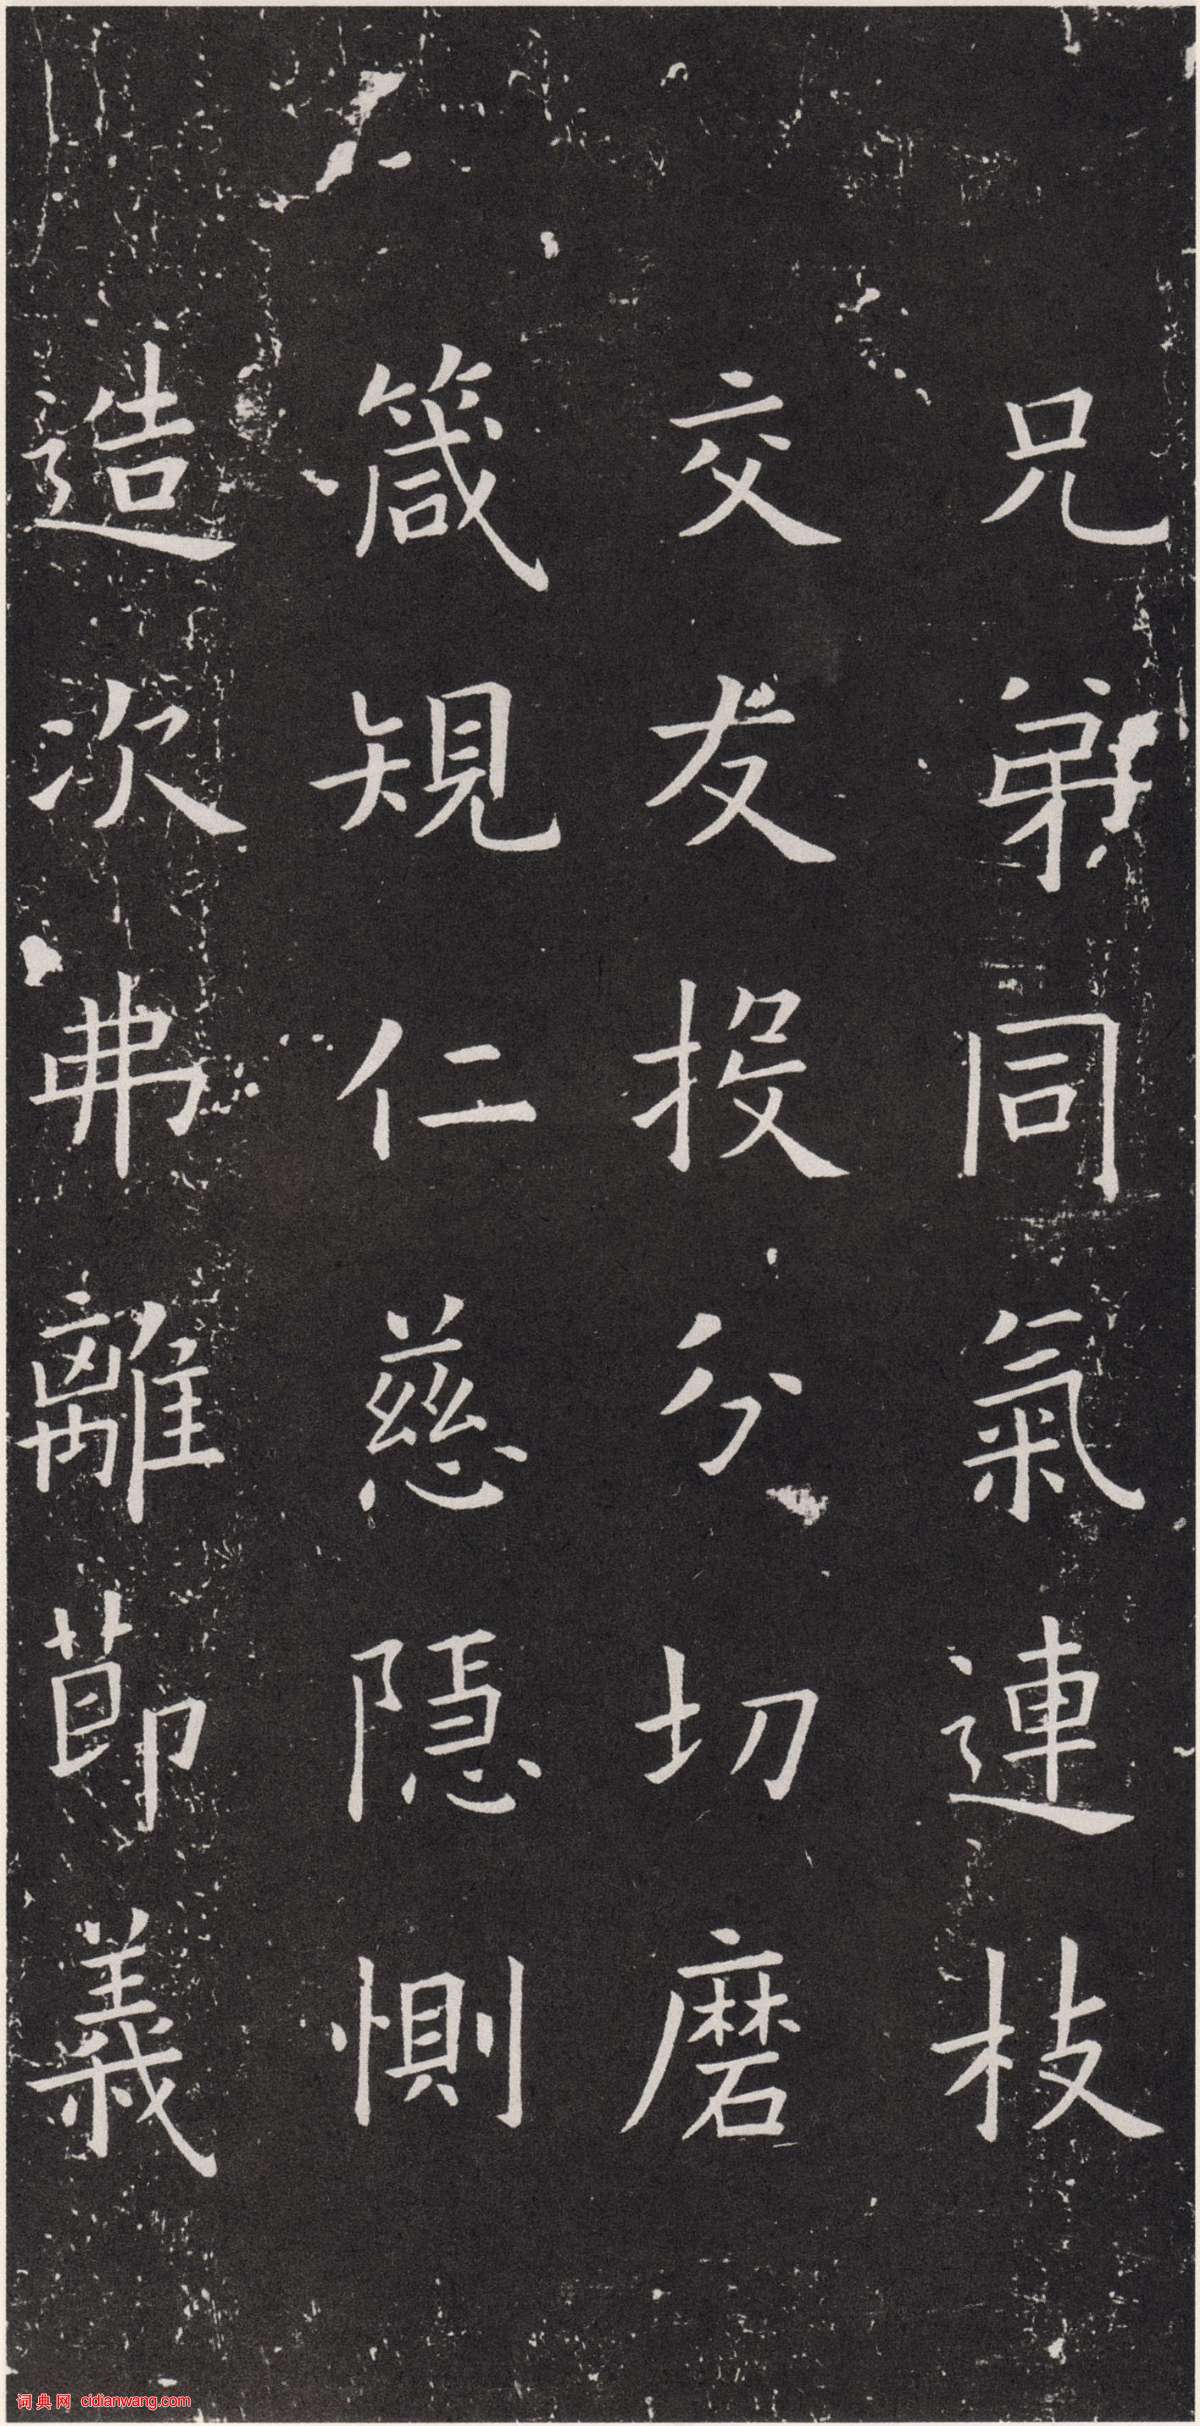 兄弟同氣連枝
交友投分切磨
箴規仁慈隱惻
造次弗離節義
词典网 cidianwang.com